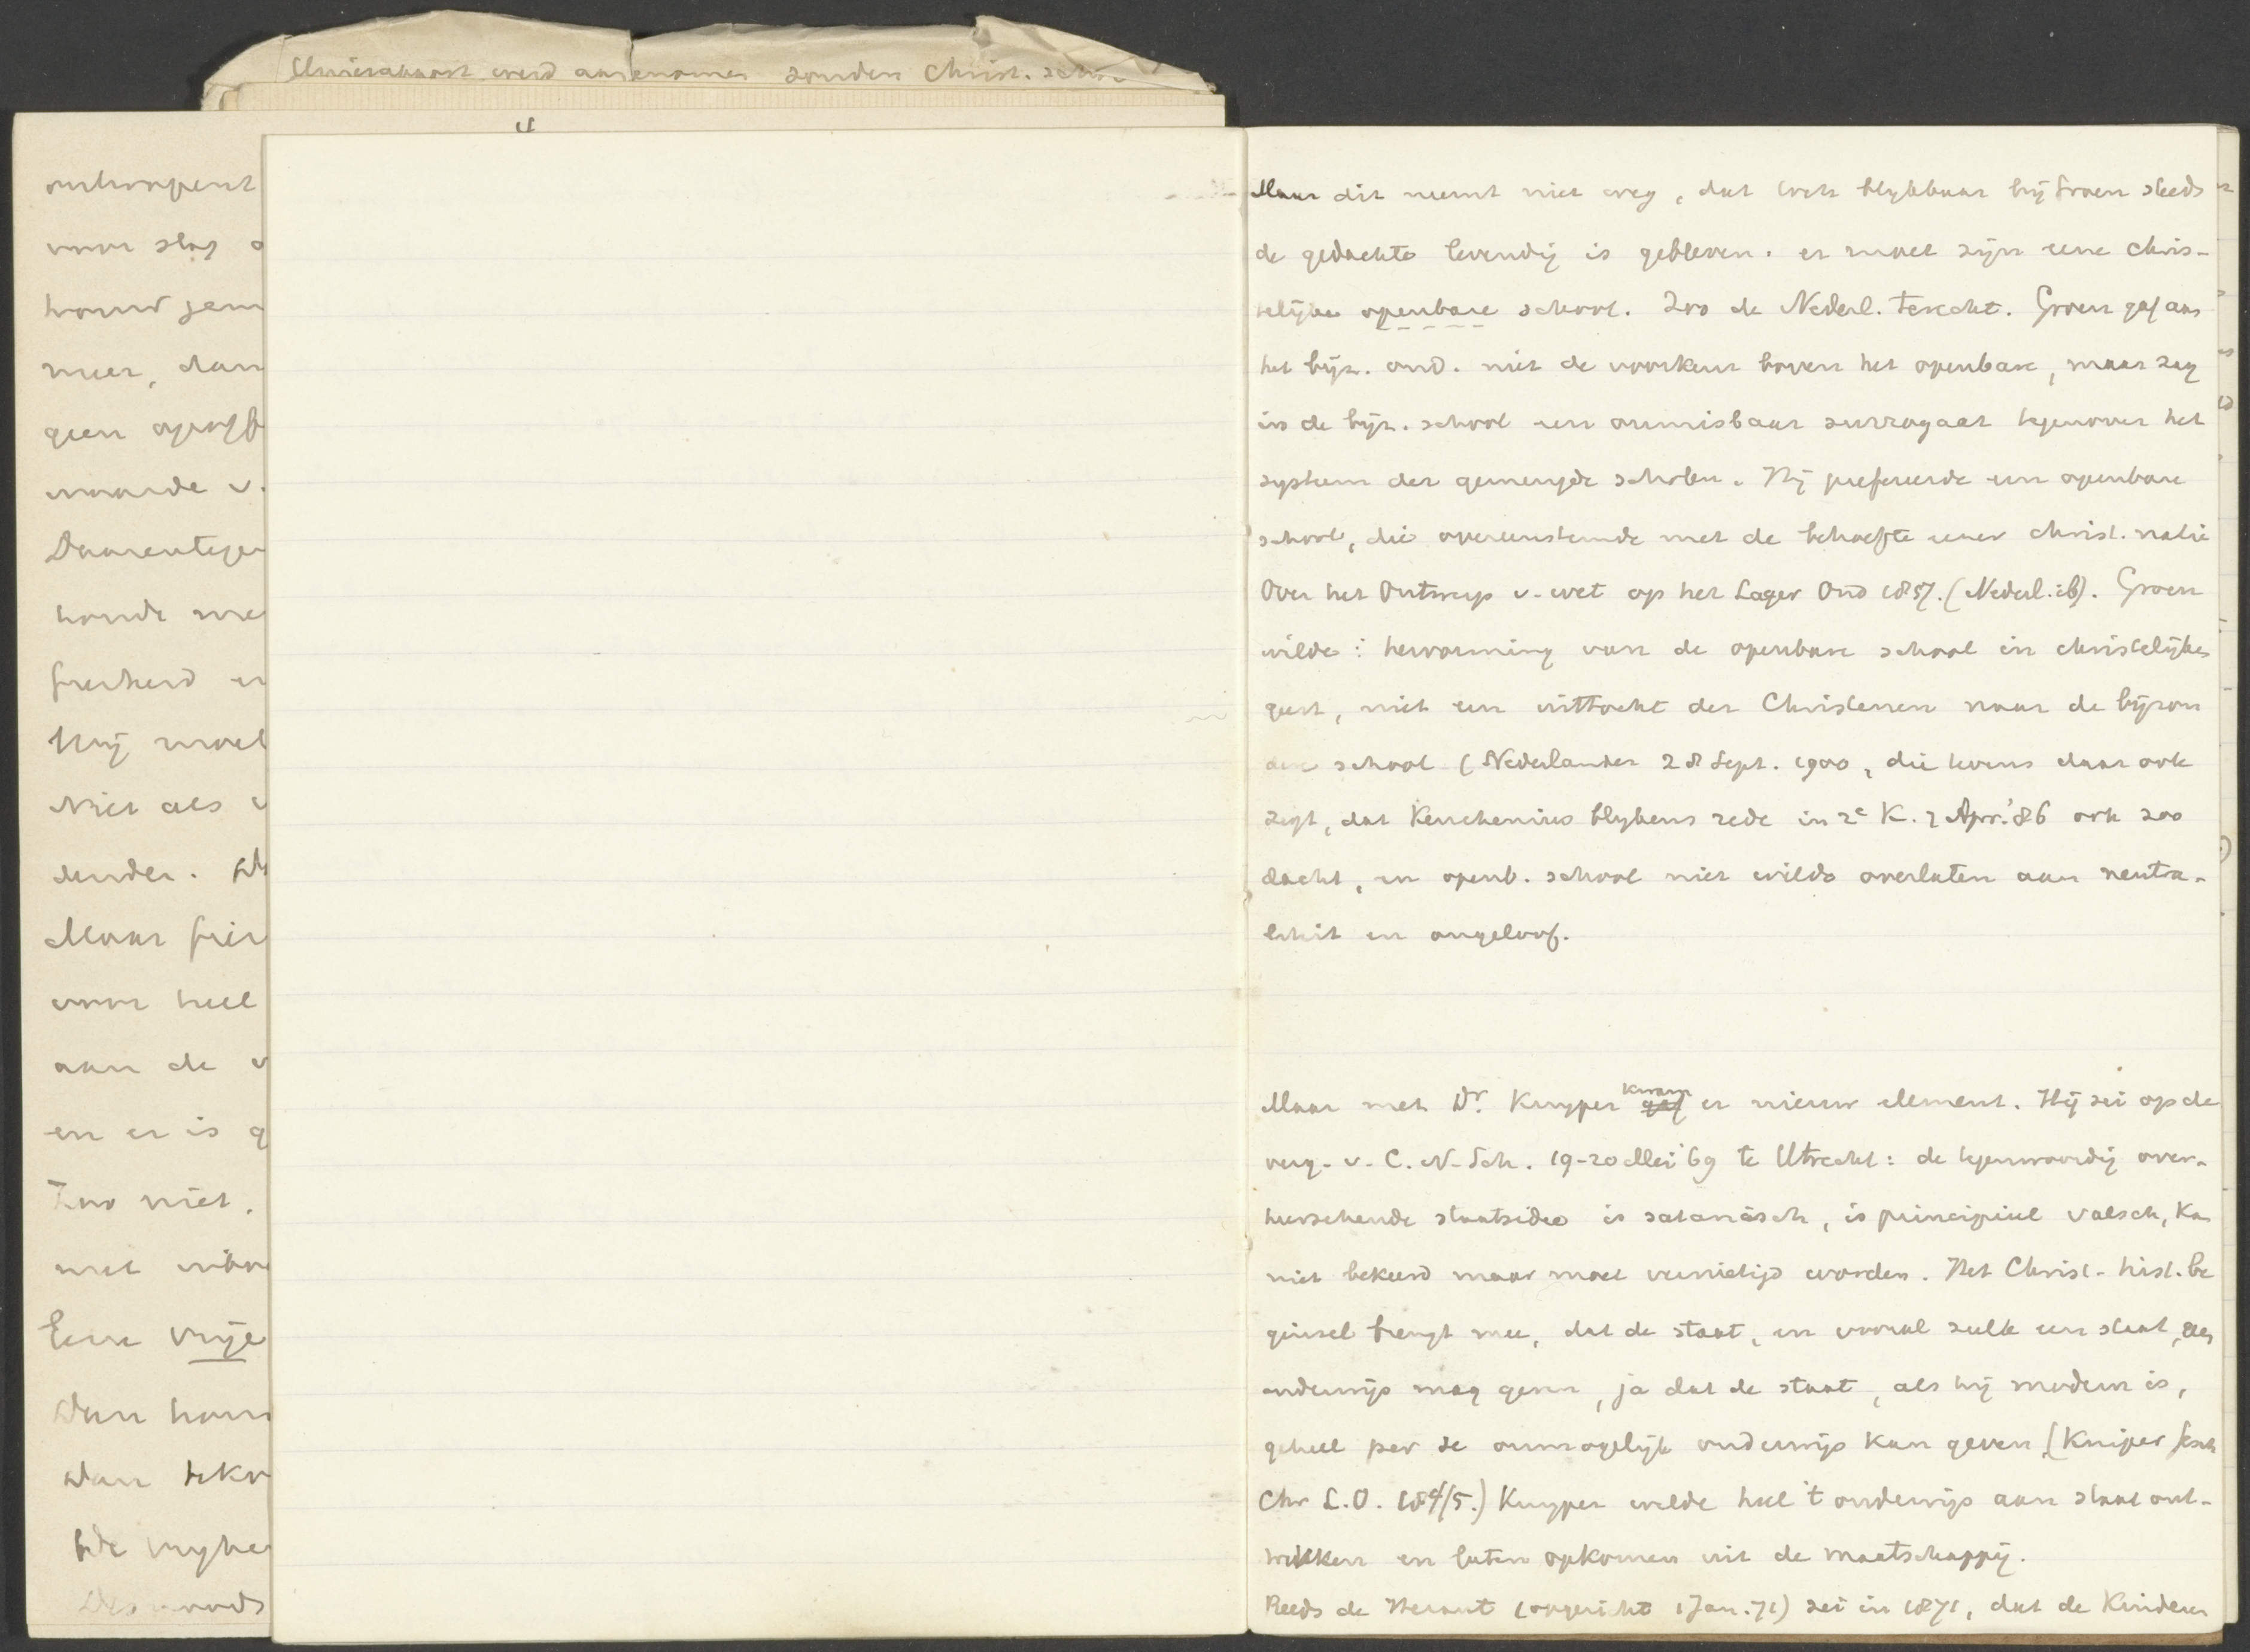 werd aangenomen zonder Christ.
voor slag
meer, dan
geen
waarde v.
Daarentegen
Hij moet
Niet als
Maar
voor heel
aan de
en er is
Zoo niet.
met
Eene vrije
Dan
Dan
De vryhe
Maar dit neemt niet weg, dat toch blykbaar bij Groen steeds
de gedachte levendig is gebleven: er moet zijn eene chris-
telijke openbare school. Zoo de Nederl. terecht. Groen gaf aan
het bijz. ond. niet de voorkeur boven het openbare, maar zag
in de bijz. school een onmisbaar surrogaat tegenover het
systeem der gemengde scholen. Hij prefereerde een openbare
school, die overeenstemde met de behoefte eener christ. natie
Over het Ontwerp v. wet op het Lager Ond 1857. (Nederl. ib). Groen
wilde: hervorming van de openbare school in christelijken
geest, niet een uittocht der Christenen naar de bijzon
dere school (Nederlander 28 Sept. 1900, die tevens daar ook
zegt, dat Keuchenius blykens rede in 2e K. 7 Apr. '86 ook zoo
dacht, en openb. school niet wilde overlaten aan neutra-
liteit en ongeloof.
Maar met Dr. Kuyper kwam er nieuw element. Hij zei op de
verg. v. C. N. Sch. 19-20 Mei '69 te Utrecht: de tegenwoordig over-
heerschende staatsidee is satanisch, is principieel valsch, kan
niet bekeerd maar moet vernietigd worden. Het Christ. hist. be
ginsel brengt mee, dat de staat, en vooral zulk een staat, geen
onderwijs mag geven, ja dat de staat, als hij modern is,
geheel per se onmogelijk onderwijs kan geven (Kuiper Gesch
Chr L.O. 184/5.) Kuyper wilde heel 't onderwijs aan staat ont-
trekken en laten opkomen uit de maatschappij.
Reeds de Heraut (opgericht 1 Jan. 71) zei in 1871, dat de Kinderen